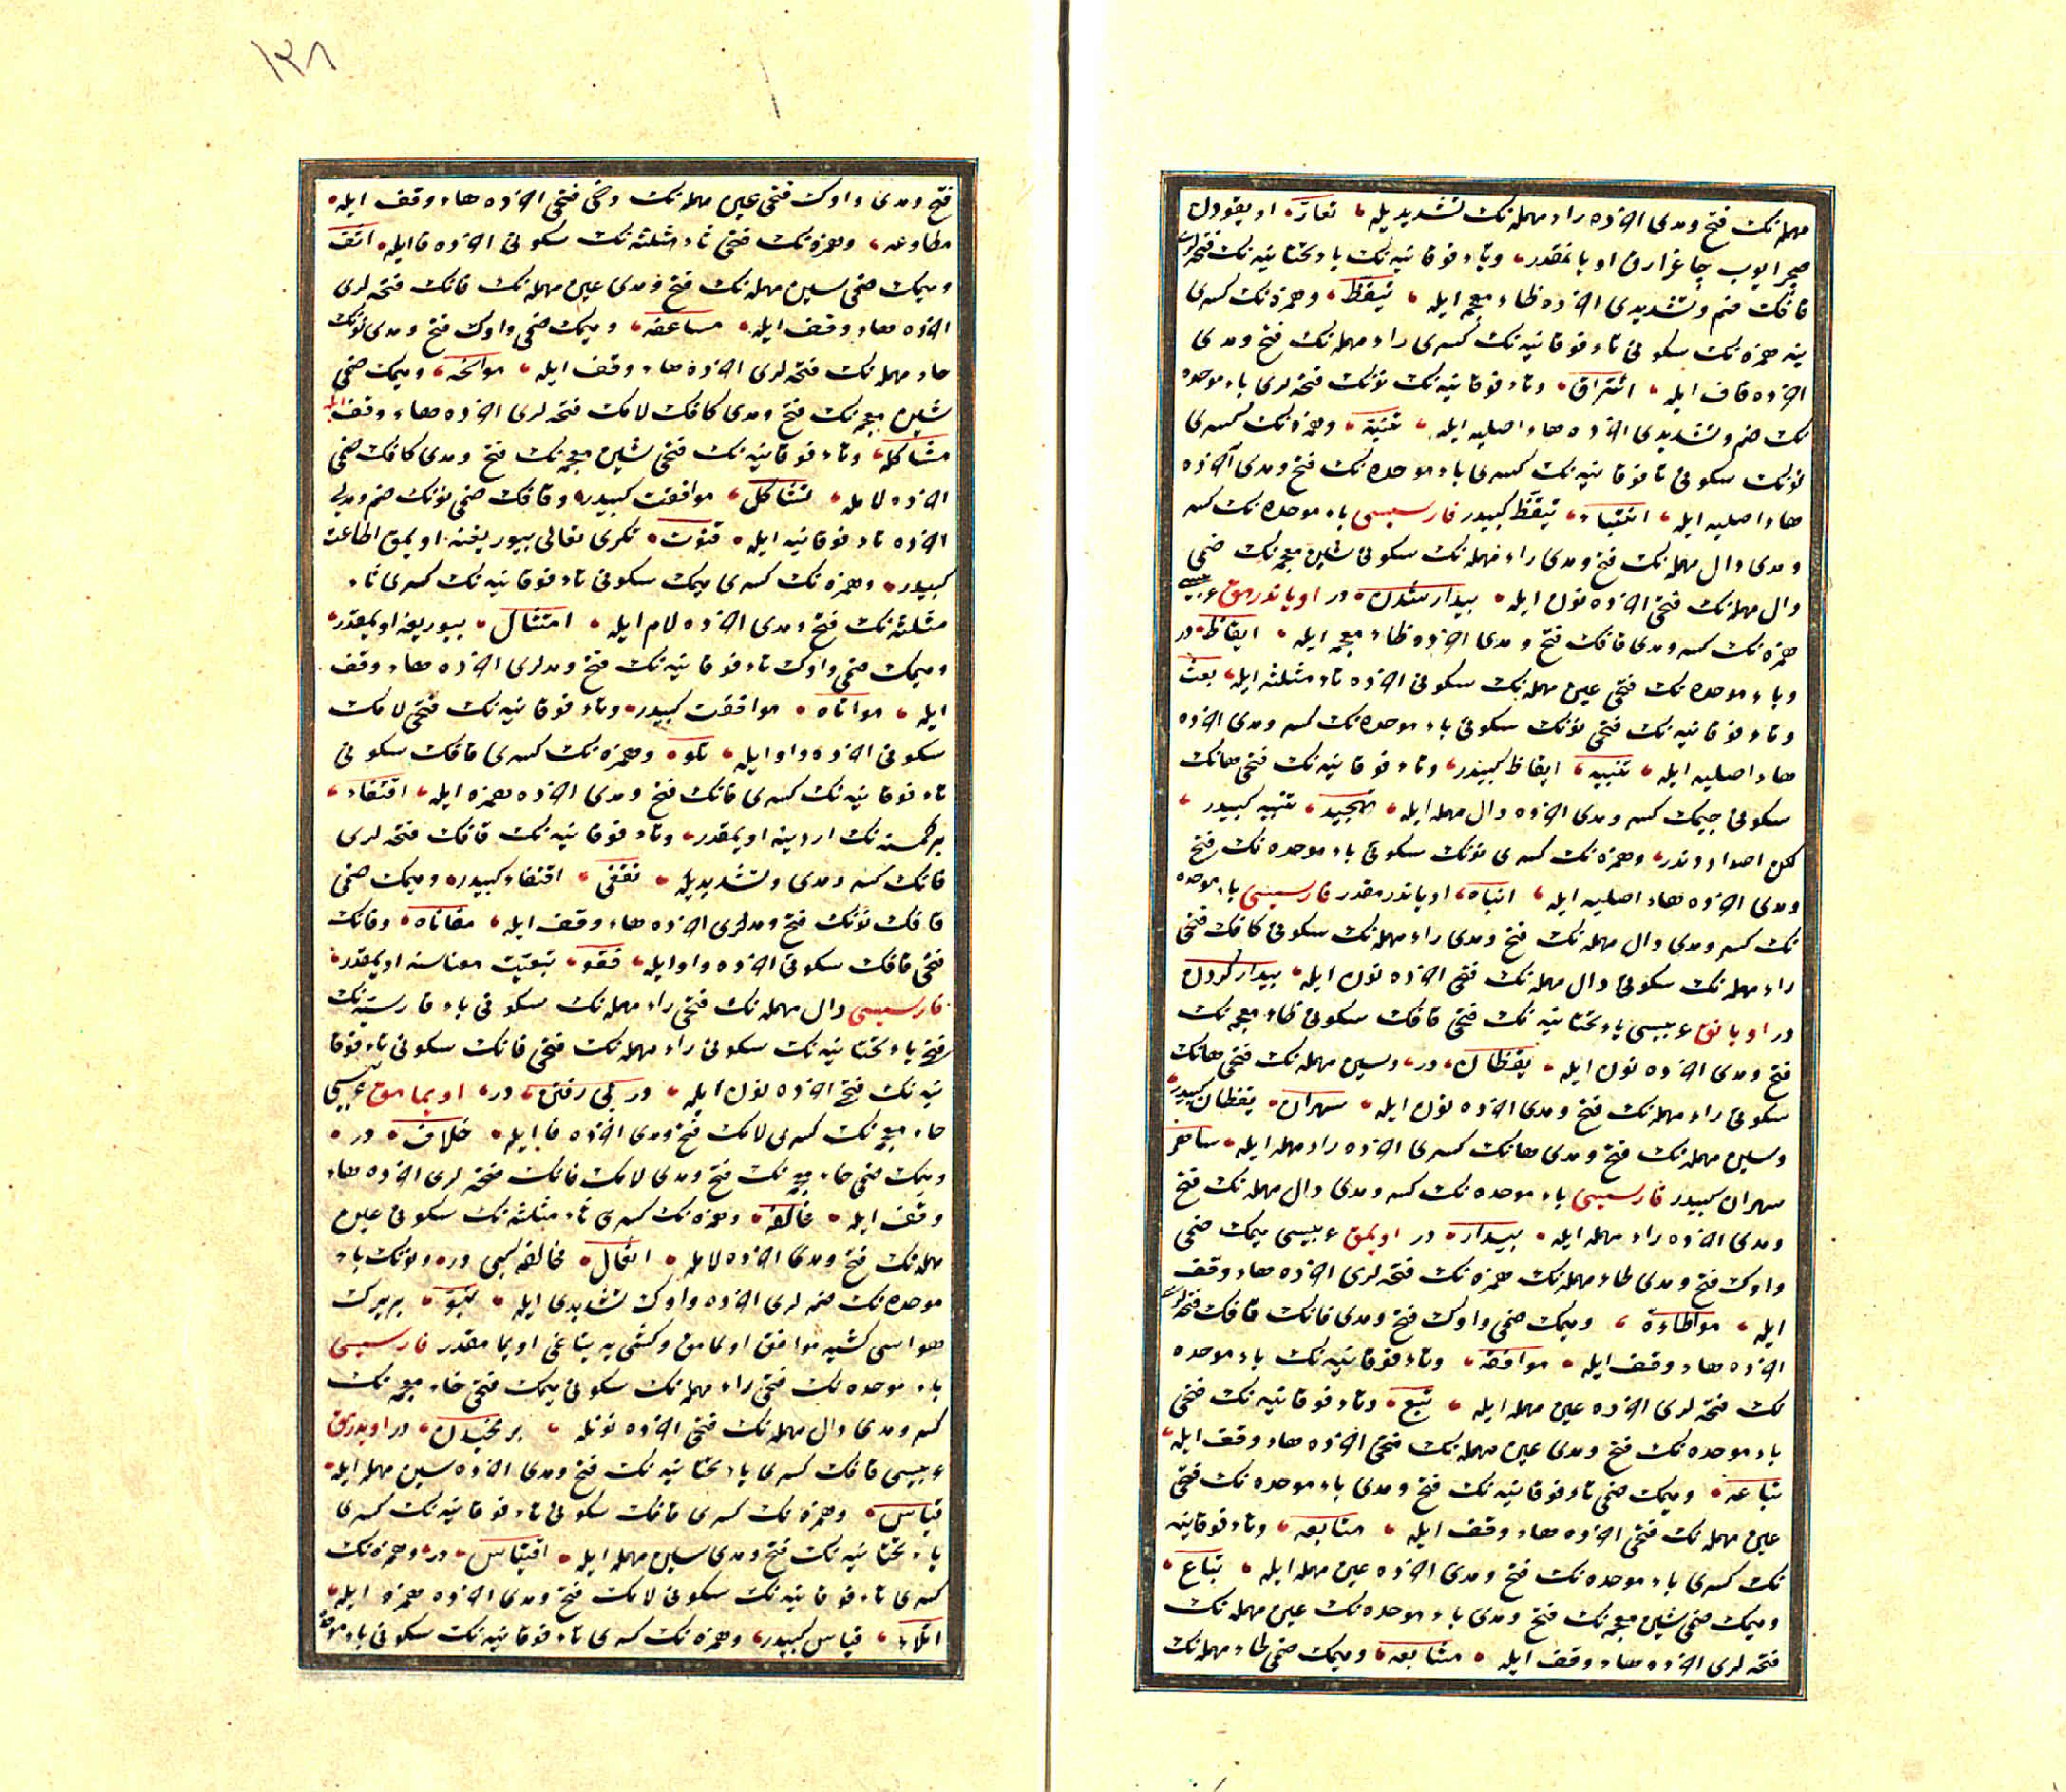 مهمله نك فتح ومدى اخرده راء مهمله نك تشديديله تعارّ اويقودن
صچرايوب چاغرارق اويانمقدر وتاء فوقانيه نك ياء تحتانيه نك فتحه لرى
قافك ضم وتشديدى اخرده ظاء معجمه ايله تيقّظ وهمزه نك كسرى
ينه همزه نك سكونى تاء فوقانيه نك كسرى راء مهمله نك فتح ومدى
اخرده قاف ايله ائتراق وتاء فوقانيه نك نونك فتحه لرى باء موحده
نك ضم وتشديدى اخرده هاء اصليه ايله تنبّه وهمزه نك كسرى
نونك سكونى تا فوقانيه نك كسرى باء موحده نك فتح ومدى آخرده
هاء اصليه ايله انتباه تيقّظ كبيدر فارسيسى باء موحده نك كسر
ومدى دال مهمله نك فتح ومدى راء مهمله نك سكونى شين معجمه نك ضمى
دال مهمله نك فتحى اخرده نون ايله بيدار شدن در اوياندرمق عربيسى
همزه نك كسر ومدى قافك فتح ومدى اخرده ظاء معجمه ايله ايقاظ در
وباء موحده نك فتحى عين مهمله نك سكونى اخرده ثاء مثلثه ايله بعث
وتاء فوقانيه نك فتحى نونك سكونى باء موحده نك كسر ومدى اخرده
هاء اصليه ايله تنبيه ايقاظ كبيدر وتاء فوقانيه نك فتحى هانك
سكونى جيمك كسر ومدى اخرده دال مهمله ايله تهجيد تنبيه كبيدر
لكن اضداددندر وهمزه نك كسرى نونك سكونى باء موحده نك فتح
ومدى اخرده هاء اصليه ايله انباه اوياندرمقدر فارسيسى باء موحده
نك كسر ومدى دال مهمله نك فتح ومدى راء مهمله نك سكونى كافك فتحى
راء مهمله نك سكونى دال مهمله نك فتحى اخرده نون ايله بيدار كردن
در اويانق عربيسى ياء تحتانيه نك فتحى قافك سكونى ظاء معجمه نك
فتح ومدى اخرده نون ايله يقظان در وسين مهمله نك فتحى هانك
سكونى راء مهمله نك فتح ومدى اخرده نون ايله سهران يقظان كبيدر
وسين مهمله نك فتح ومدى هانك كسرى اخرده راء مهمله ايله ساهر
سهران كبيدر فارسيسى باء موحده نك كسر ومدى دال مهمله نك فتح
ومدى اخرده راء مهمله ايله بيدار در اويمق عربيسى ميمك ضمى
واوك فتح ومدى طاء مهمله نك همزه نك فتحه لرى اخرده هاء وقف
ايله مواطاءة وميمك ضمى واوك فتح ومدى فانك قافك فتحه لرى
اخرده هاء وقف ايله موافقه وتاء فوقانيه نك باء موحده
نك فتحه لرى اخرده عين مهمله ايله تبع وتاء فوقانيه نك فتحى
باء موحده نك فتح ومدى عين مهمله نك فتحى اخرده هاء وقف ايله
تباعه وميمك ضمى تاء فوقانيه نك فتح ومدى باء موحده نك فتحى
عين مهمله نك فتحى اخرده هاء وقف ايله متابعه وتاء فوقانيه
نك كسرى باء موحده نك فتح ومدى اخرده عين مهمله ايله تباع
وميمك ضمى شين معجمه نك فتح ومدى باء موحده نك عين مهمله نك
فتحه لرى اخرده هاء وقف ايله مشابعه وميمك ضمى طاء مهمله نك
١٣٨
فتح ومدى واوك فتحى عين مهمله نك دخى فتحى اخرده هاء وقف ايله
مطاوعه وهمزه نك فتحى ثاء مثلثه نك سكونى اخرده فا ايله اثف
وميمك ضمى سين مهمله نك فتح ومدى عين مهمله نك فانك فتحه لرى
اخرده هاء وقف ايله مساعفه وميمك ضمى واوك فتح ومدى نونك
حاء مهمله نك فتحه لرى اخرده هاء وقف ايله موانحه وميمك ضمى
شين معجمه نك فتح ومدى كافك لامك فتحه لرى اخرده هاء وقف ايله
مشاكله وتاء فوقانيه نك فتحى شين معجمه نك فتح ومدى كافك ضمى
اخرده لامله تشاكل موافقت كبيدر وقافك ضمى نونك ضم ومدى
اخرده تاء فوقانيه ايله قنوت تكرى تعالى بيوريغنه اويمق اطاعت
كبيدر وهمزه نك كسرى ميمك سكونى تاء فوقانيه نك كسرى ثاء
مثلثه نك فتح ومدى اخرده لام ايله امتثال بيوريغه اويمقدر
وميمك ضمى واوك تاء فوقانيه نك فتح ومدلرى اخرده هاء وقف
ايله مواتاه موافقت كبيدر وتاء فوقانيه نك فتحى لامك
سكونى اخرده واو ايله تلو وهمزه نك كسرى قافك سكونى
تاء فوقانيه نك كسرى فانك فتح ومدى اخرده همزه ايله اقتفاء
بر كمسنه نك اردينه اويمقدر وتاء فوقانيه نك قافك فتحه لرى
فانك كسر ومدى وتشديديله تقفّى اقتفاء كبيدر وميمك ضمى
قافك نونك فتح ومدلرى اخرده هاء وقف ايله مقاناه وقافك
فتحى فانك سكونى اخرده واو ايله قفو تبعيت معناسنه اويمقدر
فارسيسى دال مهمله نك فتحى راء مهمله نك سكونى باء فارسيه نك
فتح ياء تحتانيه نك سكونى راء مهمله نك فتحى فانك سكونى تاء فوقا
نيه نك فتح اخرده نون ايله در پى رفتن در اويمامق عربيسى
خاء معجمه نك كسرى لامك فتح ومدى اخرده فا ايله خلاف در
وميمك ضمى خاء معجمه نك فتح ومدى لامك فانك فتحه لرى اخرده هاء
وقف ايله مخالفه وهمزه نك كسرى ثاء مثلثه نك سكونى عين
مهمله نك فتح ومدى اخرده لامله اثعال مخالفه كبى در ونونك باء
موحده نك ضمه لرى اخرده واوك تشديدى ايله نبوّ بر يرك
هواسى كشيه موافق اولمامق وكشى يه يتاغى اويمامقدر فارسيسى
باء موحده نك فتحى راء مهمله نك سكونى ميمك فتحى خاء معجمه نك
كسر ومدى دال مهمله نك فتحى اخرده نونله برمخيدن در اويدرمق
عربيسى قافك كسرى ياء تحتانيه نك فتح ومدى اخرده سين مهمله ايله
قياس وهمزه نك كسرى قافك سكونى تاء فوقانيه نك كسرى
ياء تحتانيه نك فتح ومدى سين مهمله ايله اقتياس در وهمزه نك
كسرى تاء فوقانيه نك سكونى لامك فتح ومدى اخرده همزه ايله
اتلاء قياس كبيدر وهمزه نك كسرى تاء فوقانيه نك سكونى باء موحده